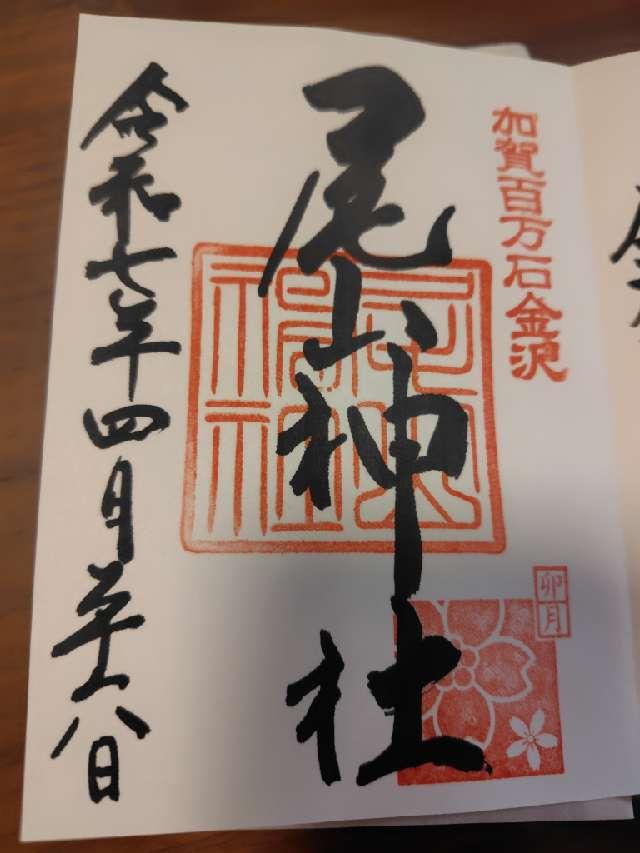 加賀百万石金沢
卯月
尾山神社
尾山
神社
令和七年四月八日